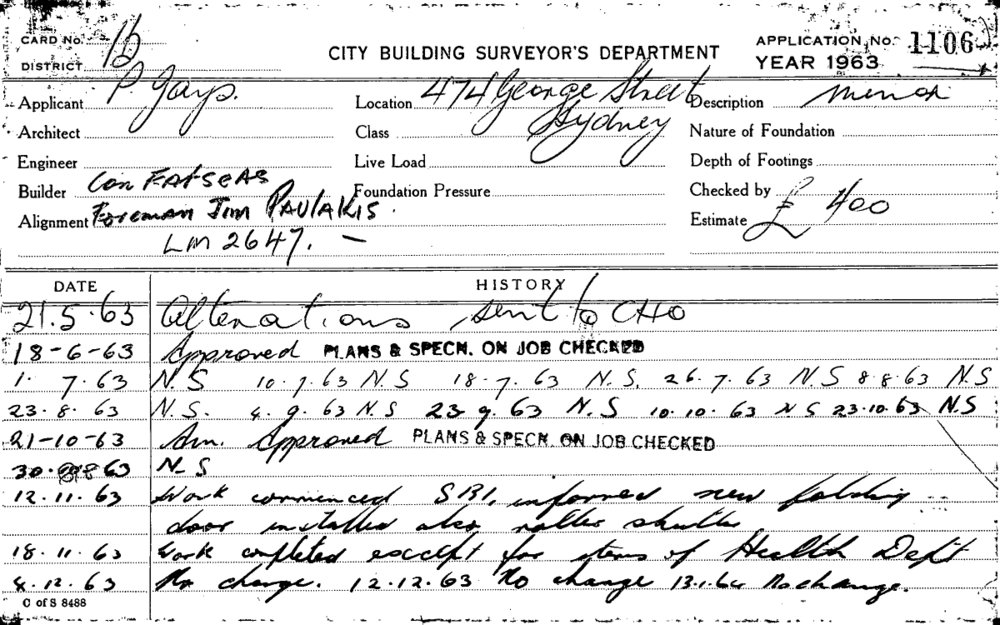 CARD No. 1b
DISTRICT
CITY BUILDING SURVEYOR'S DEPARTMENT
APPLICATION No. 1106
YEAR 1963
Applicant P Jays.
Location 474 George Street
Sydney
Description minor
Architect
Class
Nature of Foundation
Engineer
Live Load
Depth of Footings
Builder Con FATSEAS
Foundation Pressure
Checked by
Alignment Foreman JIM PAVLAKIS.
Estimate £ 400
LM 2647. —
DATE HISTORY
21.5.63 Alterations sent to CHO
18-6-63 Approved PLANS & SPECN. ON JOB CHECKED
1. 7. 63 N.S 10.7.63 N.S 18.7.63 N.S. 26.7.63 N.S 8.8.63 N.S
23.8.63 N.S. 4.9.63 N.S 23.9.63 N.S 10.10.63 N S 23.10.63 N.S
21-10-63 Am. Approved PLANS & SPECN. ON JOB CHECKED
30. 63 N-S
12.11.63 Work commenced SBI, informed new folding
door installed also roller shutter
18.11.63 Work completed except for items of Health Dept
4.12.63 No change. 12.12.63 No change 13.1.64 No change.
C of S 8488